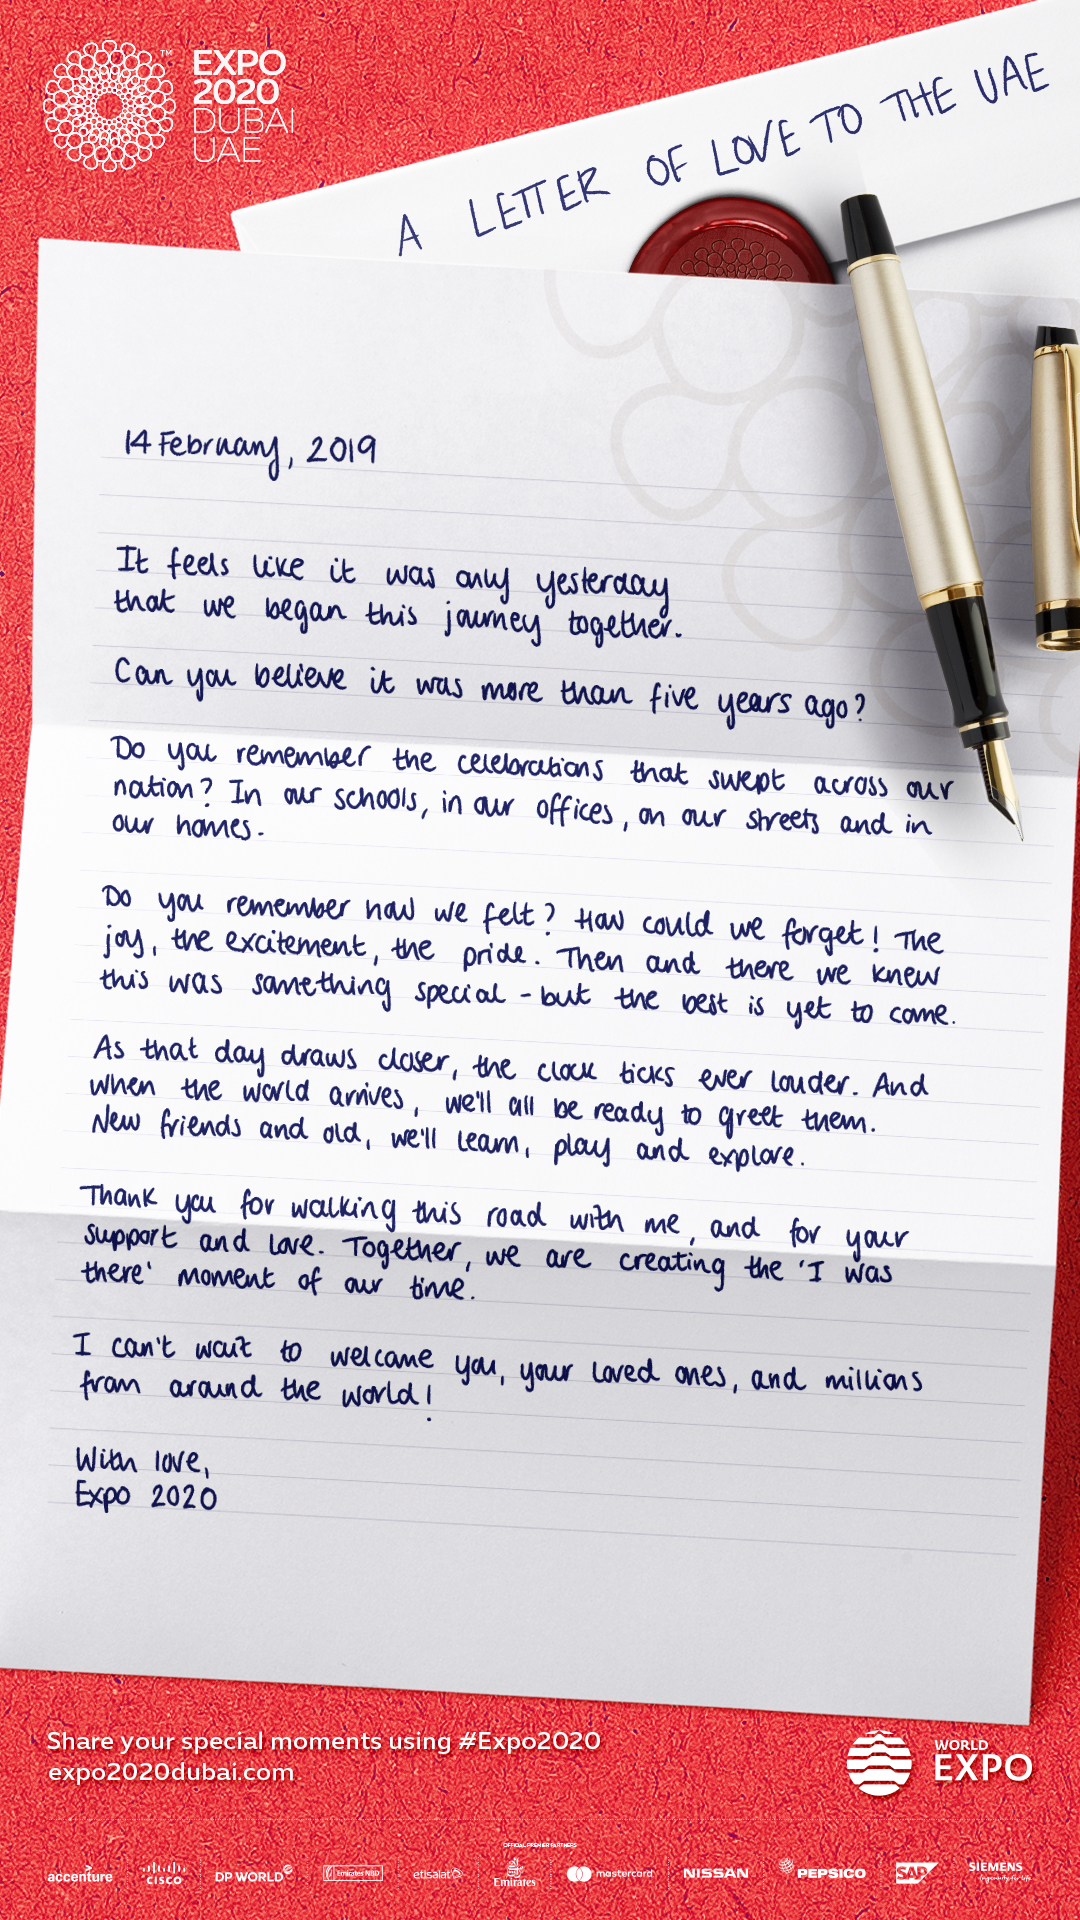 EXPO
2020
DUBAI
UAE
TM
A LETTER OF LOVE TO THE UAE
14 February, 2019
It feels like it was only yesterday
that we began this journey together.
Can you believe it was more than five years ago?
Do you remember the celebrations that swept across our
nation? In our schools, in our offices, on our streets and in
our homes.
Do you remember how we felt? How could we forget! The
joy, the excitement, the pride. Then and there we knew
this was something special - but the best is yet to come.
As that day draws closer, the clock ticks ever louder. And
when the world arrives, we'll all be ready to greet them.
New friends and old, we'll learn, play and explore.
Thank you for walking this road with me, and for your
support and love. Together, we are creating the 'I was
there' moment of our time.
I can't wait to welcome you, your loved ones, and millions
from around the world!
With love,
Expo 2020
Share your special moments using #Expo2020
expo2020dubai.com
WORLD
EXPO
OFFICIAL PREMIER PARTNERS
accenture cisco DP WORLD Emirates NBD etisalat Emirates mastercard NISSAN PEPSICO SAP SIEMENS
Ingenuity for life